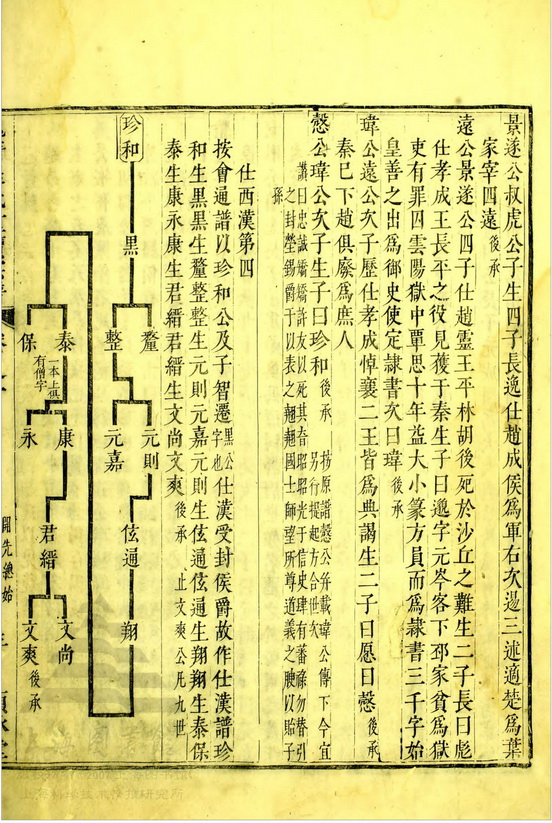 景遂公叔虎公子生四子長逸仕趙成侯爲軍右次邊三述適楚爲葉
家宰四遠後承
遠公景遂公四子仕趙靈王平林胡後死於沙丘之難生二子長曰彪
仕孝成王長平之役見獲于秦生子曰邈字元岑客下邳家貧爲獄
吏有罪囚雲陽獄中覃思十年益大小篆方員而爲隸書三千字始
皇善之出爲御史使定隸書次曰瑋後承
瑋公遠公次子歷仕孝成悼襄二王皆爲典謁生二子曰愿曰慤後承
秦已下趙俱廢爲庶人
慤公瑋公次子生子曰珍和後承
按原譜慤公弁載瑋公傳下今宜
另行提起方合世次
讚曰忠誠嬌嬌許友以死其杳昭昭光于信史瑋有蕃祿勿替引
之封塋錫爵于以表之翹翹國士師望所尊道義之腴以貽子
孫
仕西漢第四
按會通譜以珍和公及子智遷黑公字也仕漢受封侯爵故作仕漢譜珍
和生黑黑生釐整整生元則元嘉元則生弦通弦通生翔翔生泰保
泰生康永康生君縉君縉生文尚文爽後承
止文爽公凡九世
珍和
黑
釐
整
元則
元嘉
弦通
翔
泰
一本上俱有僧字
保
康
永
君縉
文尚
文爽後承
開先總始